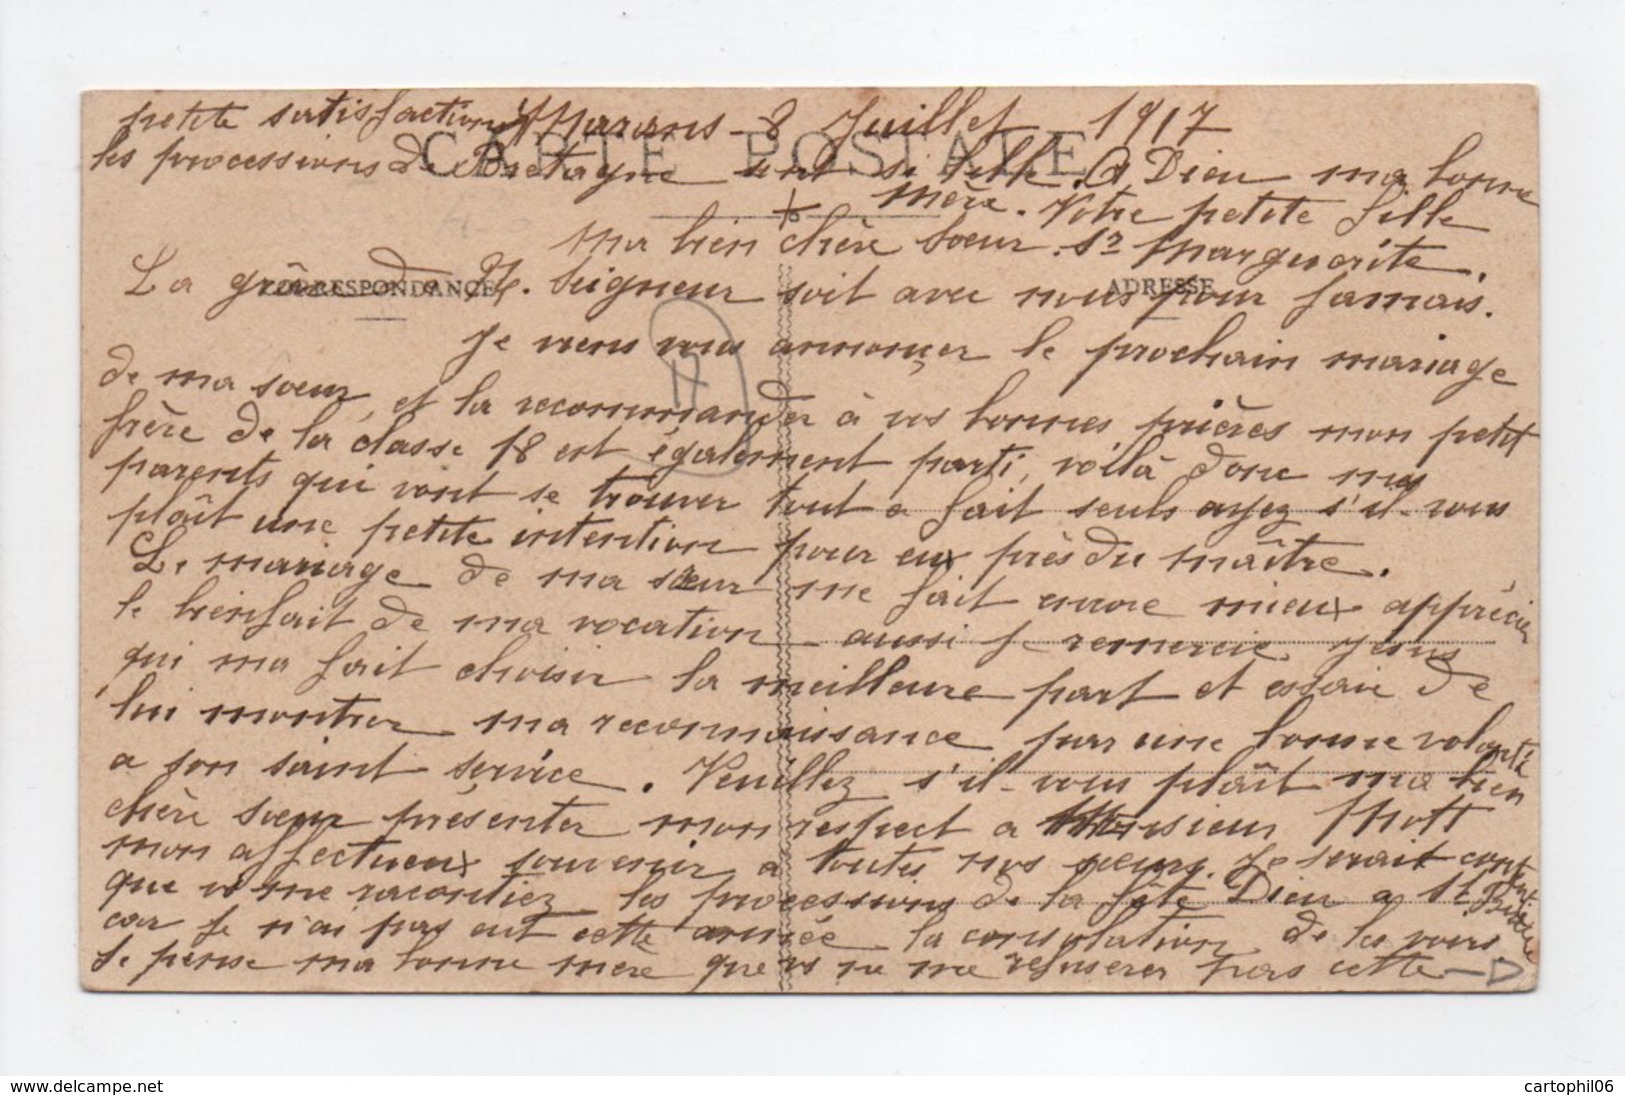 petite satisfaction Marans - 8 Juillet 1917
CARTE POSTALE
les processions de Bretagne sont si belle. A Dieu ma bonne
mère. Votre petite fille
Ma bien chère sœur. Sr Marguerite.
CORRESPONDANCE
ADRESSE
La grâce de N. Seigneur soit avec nous pour jamais.
17
Je viens vous annoncer le prochain mariage
de ma sœur, et la recommander à vos bonnes prières mon petit
frère de la classe 18 est également parti, voilà donc mes
parents qui vont se trouver tout a fait seuls ayez s'il-vous
plâit une petite intention pour eux près du maître.
Le mariage de ma sœur me fait encore mieux apprécier
le bienfait de ma vocation aussi je remercie Jésus
qui ma fait choisir la meilleure part et essaie de
lui montrer ma reconnaissance par une bonne volonté
a son saint service. Veuillez s'il-vous plaît ma bien
chère sœur présenter mon respect a Monsieur Mott
mon affectueux souvenir a toutes nos sœurs. Je serait contente
que vs me racontiez les processions de la fête Dieu a St Brieuc
car je n'ai pas eut cette année la consolation de les voir
Je pense ma bonne mère que vs ne me refuserez pas cette
delcampe.net
cartophil06